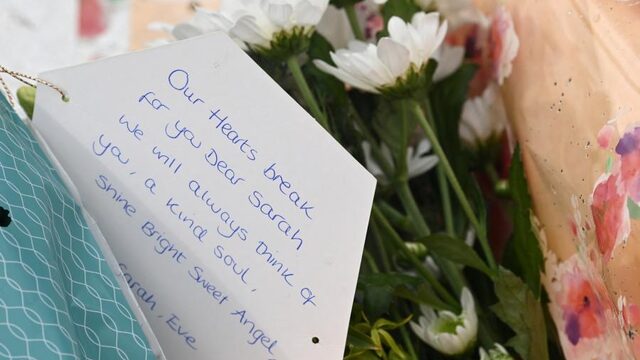 Our Hearts break
for you Dear Sarah
We will always think of
you, a kind soul,
shine Bright Sweet Angel
Sarah, Eve